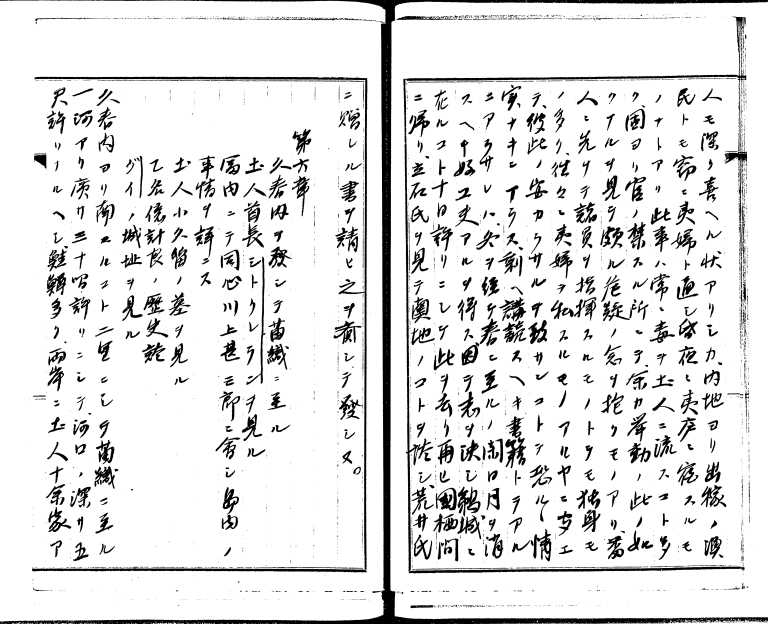 人モ深ク喜ヘル状アリシカ、内地ヨリ出稼ノ漁
民トモ窃ニ夷婦ト通シ昏夜ニ夷戸ニ宿スルモ
ノナトアリ此事ハ常ニ毒ヲ土人ニ流スコト多
ク固ヨリ官ノ禁スル所ニテ余カ挙動ノ此ノ如
クナルヲ見テ頗ル危疑ノ念ヲ抱クモノアリ蓋
人ニ先タチ諸員ヲ指揮スルモノトクモ独身モ
ノ多ク往々ニ夷婦ヲ私スルモノアルヤニ
テ彼此ノ安カラサルヲ致サンコトヲ恐ル、情
実ナキニアラス、剰ヘ講読スヘキ書籍トテアル
ニアラサレハ冬ヲ経テ春ニ至ルノ間日月ヲ消
スヘキ好工夫アルヲ得ス因テ志ヲ決シ鵜城ニ
在ルコト十日許リニシテ此ヲ去リ再ヒ国栖間
ニ帰リ立石氏ヲ見テ輿地ノコトヲ陸シ荒井氏
ニ贈レル書ヲ請ヒ之ヲ齎シテ発シヌ。
第六章
久春内ヲ発シテ苗繊ニ至ル
土人酋長シトクレランヲ見ル
富内ニテ同心川上甚三郎ニ会シ島内ノ
事情ヲ詳ニス
土人小久留ノ墓ヲ見ル
乙名億計良ノ歴史談
グイノ城址ヲ見ル
久春内ヨリ南スルコト二里ニシテ苗繊ニ至ル
一河アリ広サ三十間許リニシテ河口ノ深サ五
尺許リナルヘシ、鮭鱒多ク両岸ニ土人十余家ア